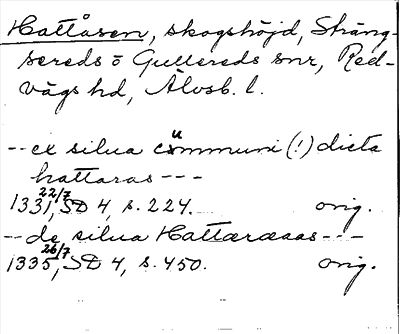 Hattåsen, skogshöjd, Sträng-
sereds o Gullereds snr, Red-
vägs hd, Älvsb. l.
-- ex silua cümmuni (!) dicta
hattaras ---
1331 22/7, SD 4, s. 224. orig.
-- de silua Hattaræaas ---
1335 26/7, SD 4, s. 450. orig.